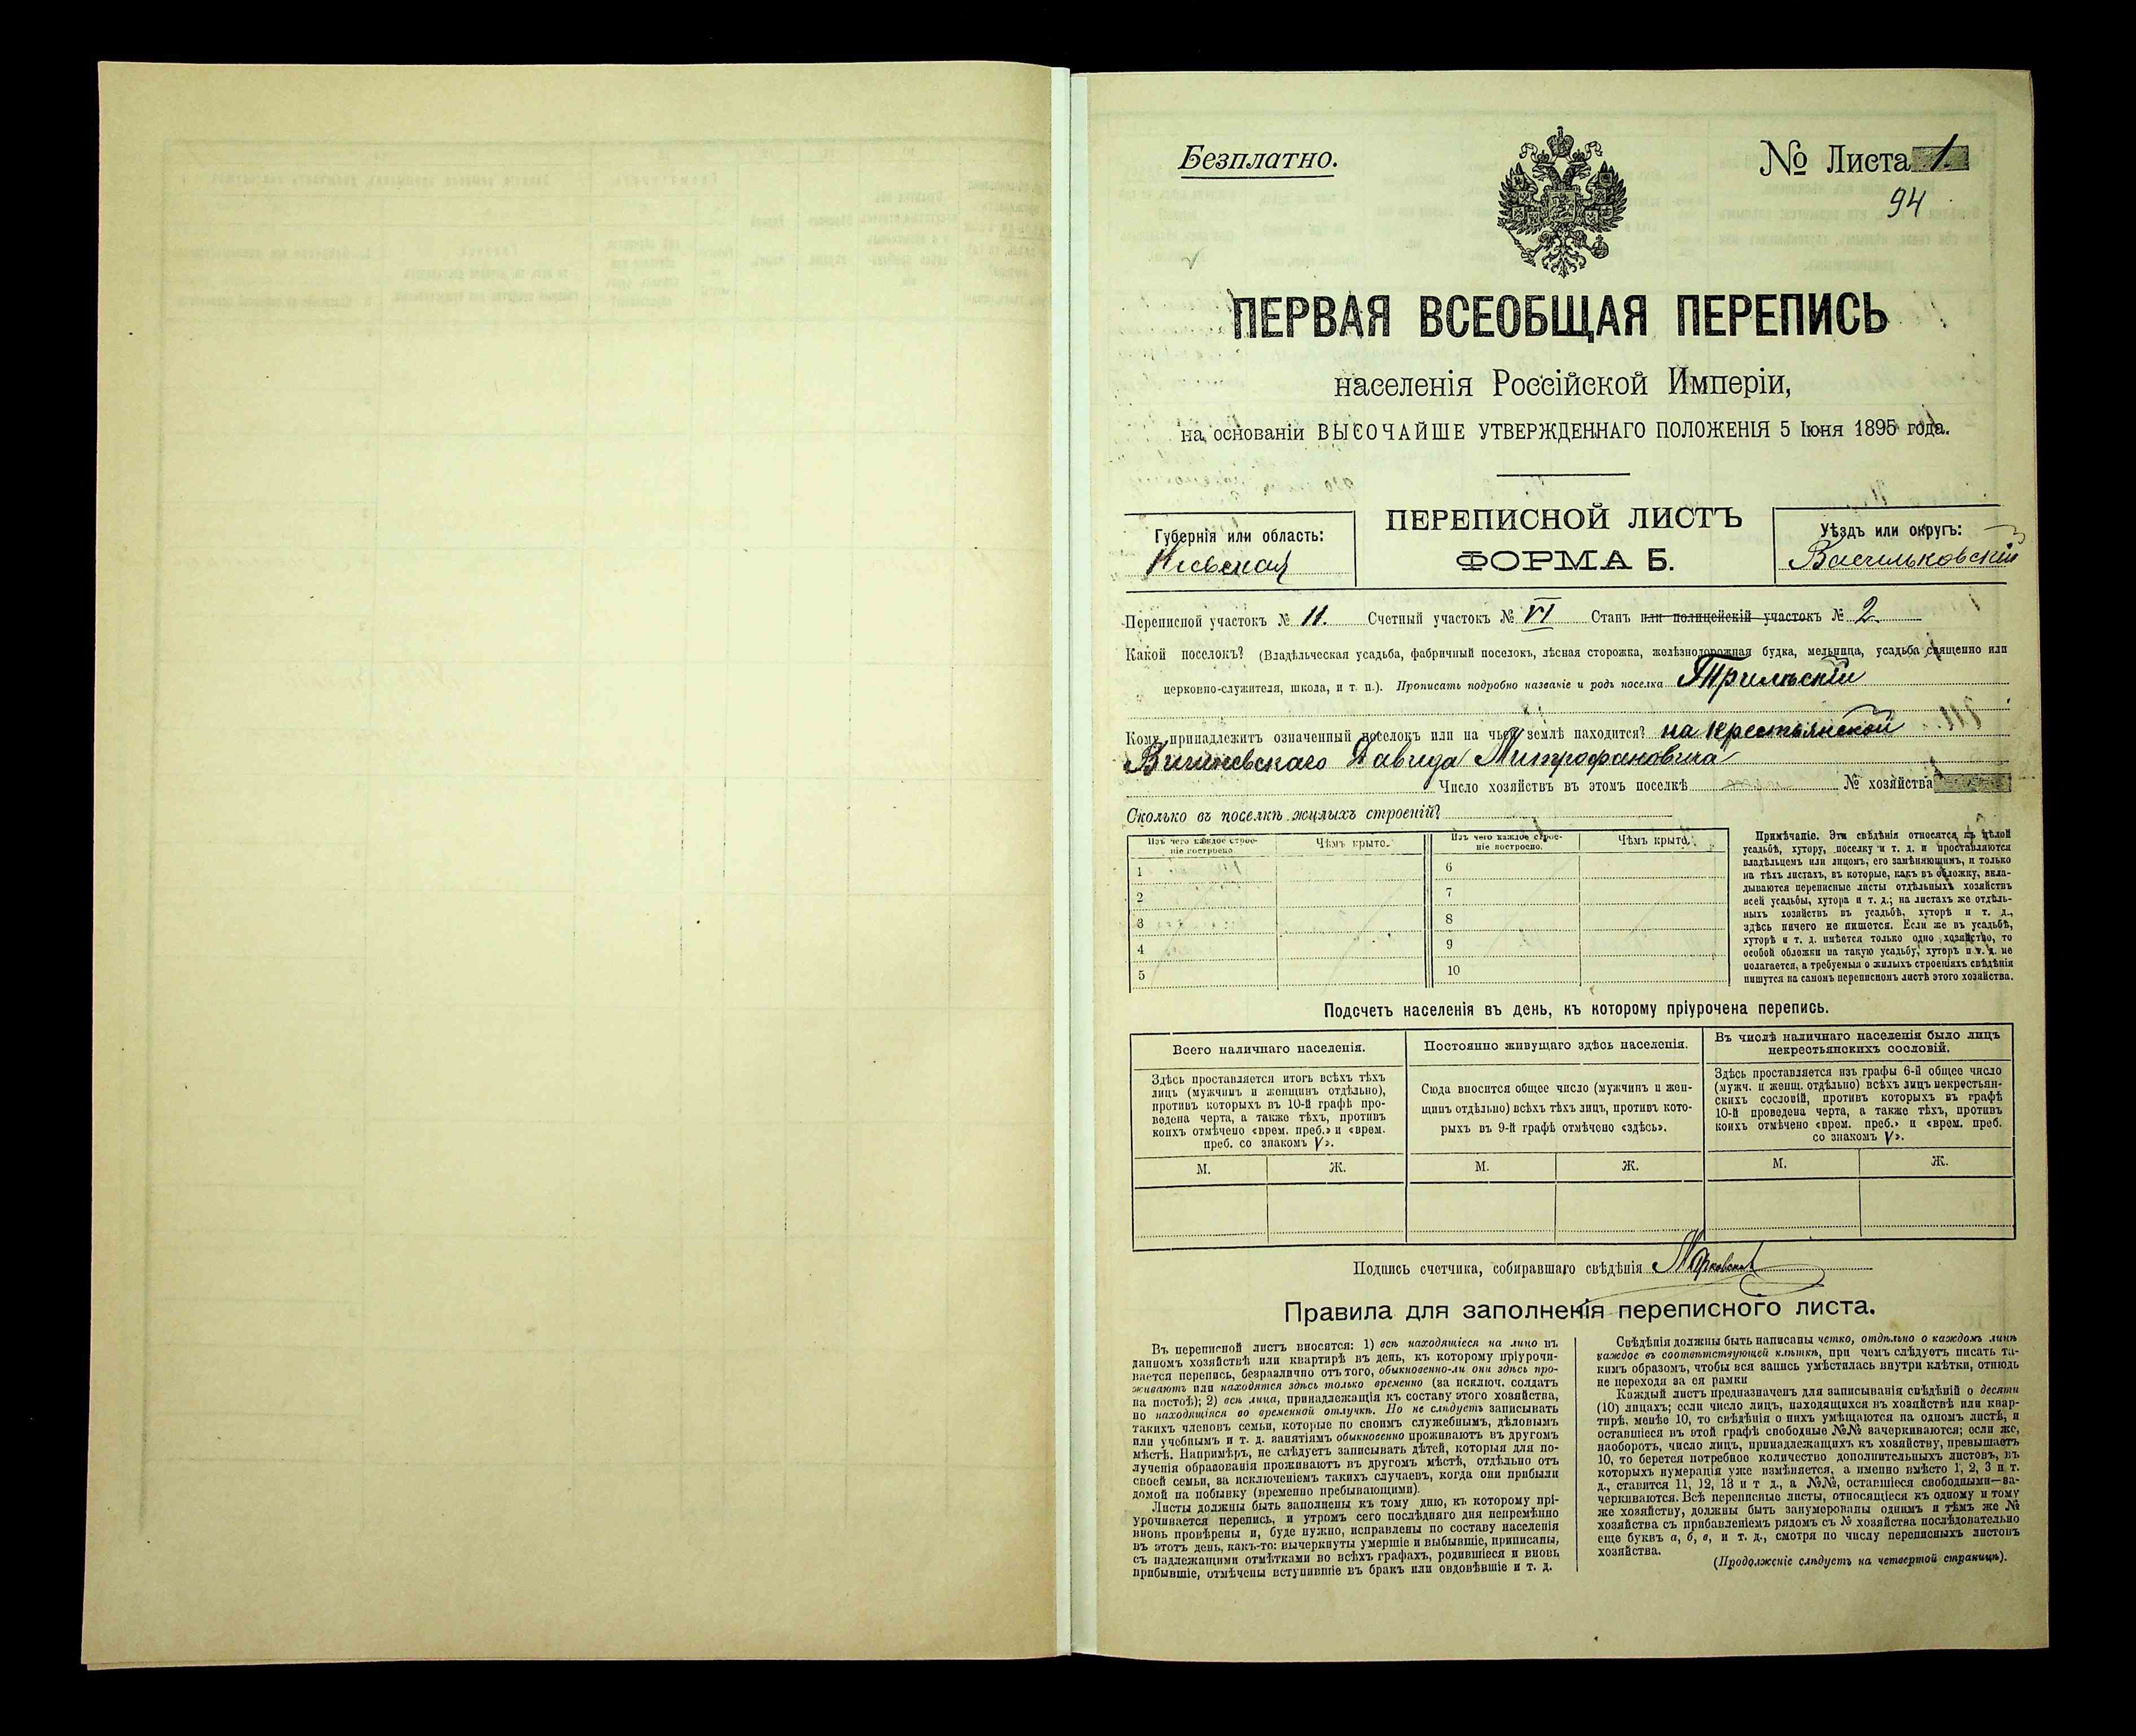 Безплатно.
№ Листа 1.
94
ПЕРВАЯ ВСЕОБЩАЯ ПЕРЕПИСЬ
населенія Россійской Имперіи,
на основаніи ВЫСОЧАЙШЕ УТВЕРЖДЕННАГО ПОЛОЖЕНІЯ 5 Іюня 1895 года.
ПЕРЕПИСНОЙ ЛИСТЪ
ФОРМА Б.
Губернія или область:
Кіевская
Уѣздъ или округъ:
Васильковскій
Переписной участокъ № 11. Счетный участокъ № VI Станъ или полицейскій участокъ № 2.
Какой поселокъ? (Владѣльческая усадьба, фабричный поселокъ, лѣсная сторожка, желѣзнодорожная будка, мельница, усадьба священно или
церковно-служителя, школа, и т. п.). Прописать подробно названіе и родъ поселка Трилѣскій
Кому принадлежитъ означенный поселокъ или на чьей землѣ находится? на крестьянской
Давида Митрофановича
Число хозяйствъ въ этомъ поселкѣ № хозяйства
Сколько въ поселкѣ жилыхъ строеній?
Изъ чего каждое строе-
ніе построено
Чѣмъ крыто.
Изъ чего каждое строе-
ніе построено.
Чѣмъ крыто.
1
2
3
4
5
6
7
8
9
10
Примѣчаніе. Эти свѣдѣнія относятся къ цѣлой
усадьбѣ, хутору, поселку и т. д. и проставляются
владѣльцемъ или лицомъ, его замѣняющимъ, и только
на тѣхъ листахъ, въ которые, какъ въ обложку, вкла-
дываются переписные листы отдѣльныхъ хозяйствъ
всей усадьбы, хутора и т. д.; на листахъ же отдѣль-
ныхъ хозяйствъ въ усадьбѣ, хуторѣ и т. д.,
здѣсь ничего не пишется. Если же въ усадьбѣ,
хуторѣ и т. д. имѣется только одно хозяйство, то
особой обложки на такую усадьбу, хуторъ и т. д. не
полагается, а требуемыя о жилыхъ строеніяхъ свѣдѣнія
пишутся на самомъ переписномъ листѣ этого хозяйства.
Подсчетъ населенія въ день, къ которому пріурочена перепись.
Всего наличнаго населенія.
Здѣсь проставляется итогъ всѣхъ тѣхъ
лицъ (мужчинъ и женщинъ отдѣльно),
противъ которыхъ въ 10-й графѣ про-
ведена черта, а также тѣхъ, противъ
коихъ отмѣчено «врем. преб.» и «врем.
преб. со знакомъ V».
М. Ж.
Постоянно живущаго здѣсь населенія.
Сюда вносится общее число (мужчинъ и жен-
щинъ отдѣльно) всѣхъ тѣхъ лицъ, противъ кото-
рыхъ въ 9-й графѣ отмѣчено «здѣсь».
М. Ж.
Въ числѣ наличнаго населенія было лицъ
некрестьянскихъ сословій.
Здѣсь проставляется изъ графы 6-й общее число
(мужч. и женщ. отдѣльно) всѣхъ лицъ некрестьян-
скихъ сословій, противъ которыхъ въ графѣ
10-й проведена черта, а также тѣхъ, противъ
коихъ отмѣчено «врем. преб.» и «врем. преб.
со знакомъ V».
М. Ж.
Подпись счетчика, собиравшаго свѣдѣнія
Правила для заполненія переписного листа.
Въ переписной листъ вносятся: 1) всѣ находящіеся на лицо въ
данномъ хозяйствѣ или квартирѣ въ день, къ которому пріурочи-
вается перепись, безразлично отъ того, обыкновенно-ли они здѣсь про-
живаютъ или находятся здѣсь только временно (за исключ. солдатъ
на постоѣ); 2) всѣ лица, принадлежащія къ составу этого хозяйства,
но находящіяся во временной отлучкѣ. Но не слѣдуетъ записывать
такихъ членовъ семьи, которые по своимъ служебнымъ, дѣловымъ
или учебнымъ и т. д. занятіямъ обыкновенно проживаютъ въ другомъ
мѣстѣ. Напримѣръ, не слѣдуетъ записывать дѣтей, которыя для по-
лученія образованія проживаютъ въ другомъ мѣстѣ, отдѣльно отъ
своей семьи, за исключеніемъ такихъ случаевъ, когда они прибыли
домой на побывку (временно пребывающими).
Листы должны быть заполнены къ тому дню, къ которому прі-
урочивается перепись, и утромъ сего послѣдняго дня непремѣнно
вновь провѣрены и, буде нужно, исправлены по составу населенія
въ этотъ день, какъ-то: вычеркнуты умершіе и выбывшіе, приписаны,
съ надлежащими отмѣтками во всѣхъ графахъ, родившіеся и вновь
прибывшіе, отмѣчены вступившіе въ бракъ или овдовѣвшіе и т. д.
Свѣдѣнія должны быть написаны четко, отдѣльно о каждомъ лицѣ
каждое въ соотвѣтствующей клѣткѣ, при чемъ слѣдуетъ писать та-
кимъ образомъ, чтобы вся запись умѣстилась внутри клѣтки, отнюдь
не переходя за ея рамки
Каждый листъ предназначенъ для записыванія свѣдѣній о десяти
(10) лицахъ; если число лицъ, находящихся въ хозяйствѣ или квар-
тирѣ, менѣе 10, то свѣдѣнія о нихъ умѣщаются на одномъ листѣ, и
оставшіеся въ этой графѣ свободные №№ зачеркиваются; если же,
наоборотъ, число лицъ, принадлежащихъ къ хозяйству, превышаетъ
10, то берется потребное количество дополнительныхъ листовъ, въ
которыхъ нумерація уже измѣняется, а именно вмѣсто 1, 2, 3 и т.
д., ставится 11, 12, 13 и т д., а №№, оставшіеся свободными—за-
черкиваются. Всѣ переписные листы, относящіеся къ одному и тому
же хозяйству, должны быть занумерованы однимъ и тѣмъ же №
хозяйства съ прибавленіемъ рядомъ съ № хозяйства послѣдовательно
еще буквъ а, б, в, и т. д., смотря по числу переписныхъ листовъ
хозяйства.
(Продолженіе слѣдуетъ на четвертой страницѣ).